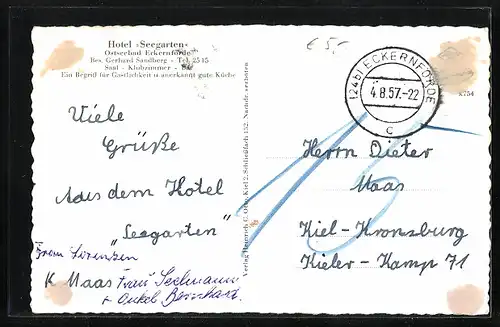 Hotel »Seegarten«
Ostseebad Eckernförde
Bes. Gerhard Sandberg - Tel. 2515
Saal - Klubzimmer -
Ein Begriff für Gastlichkeit u. anerkannt gute Küche
€ 5,-
(24b) ECKERNFÖRDE
4.8.57.-22
c
x754
Viele
Grüße
Aus dem Hotel
"Seegarten"
Frau Sorensen
K Maas Frau Seelmann
+ Onkel Bernhard.
Verlag Heinrich C. Otto, Kiel 2, Schließfach 132. Nachdr. verboten
Herrn Dieter
Maas
Kiel-Kronsburg
Kieler-Kamp 71